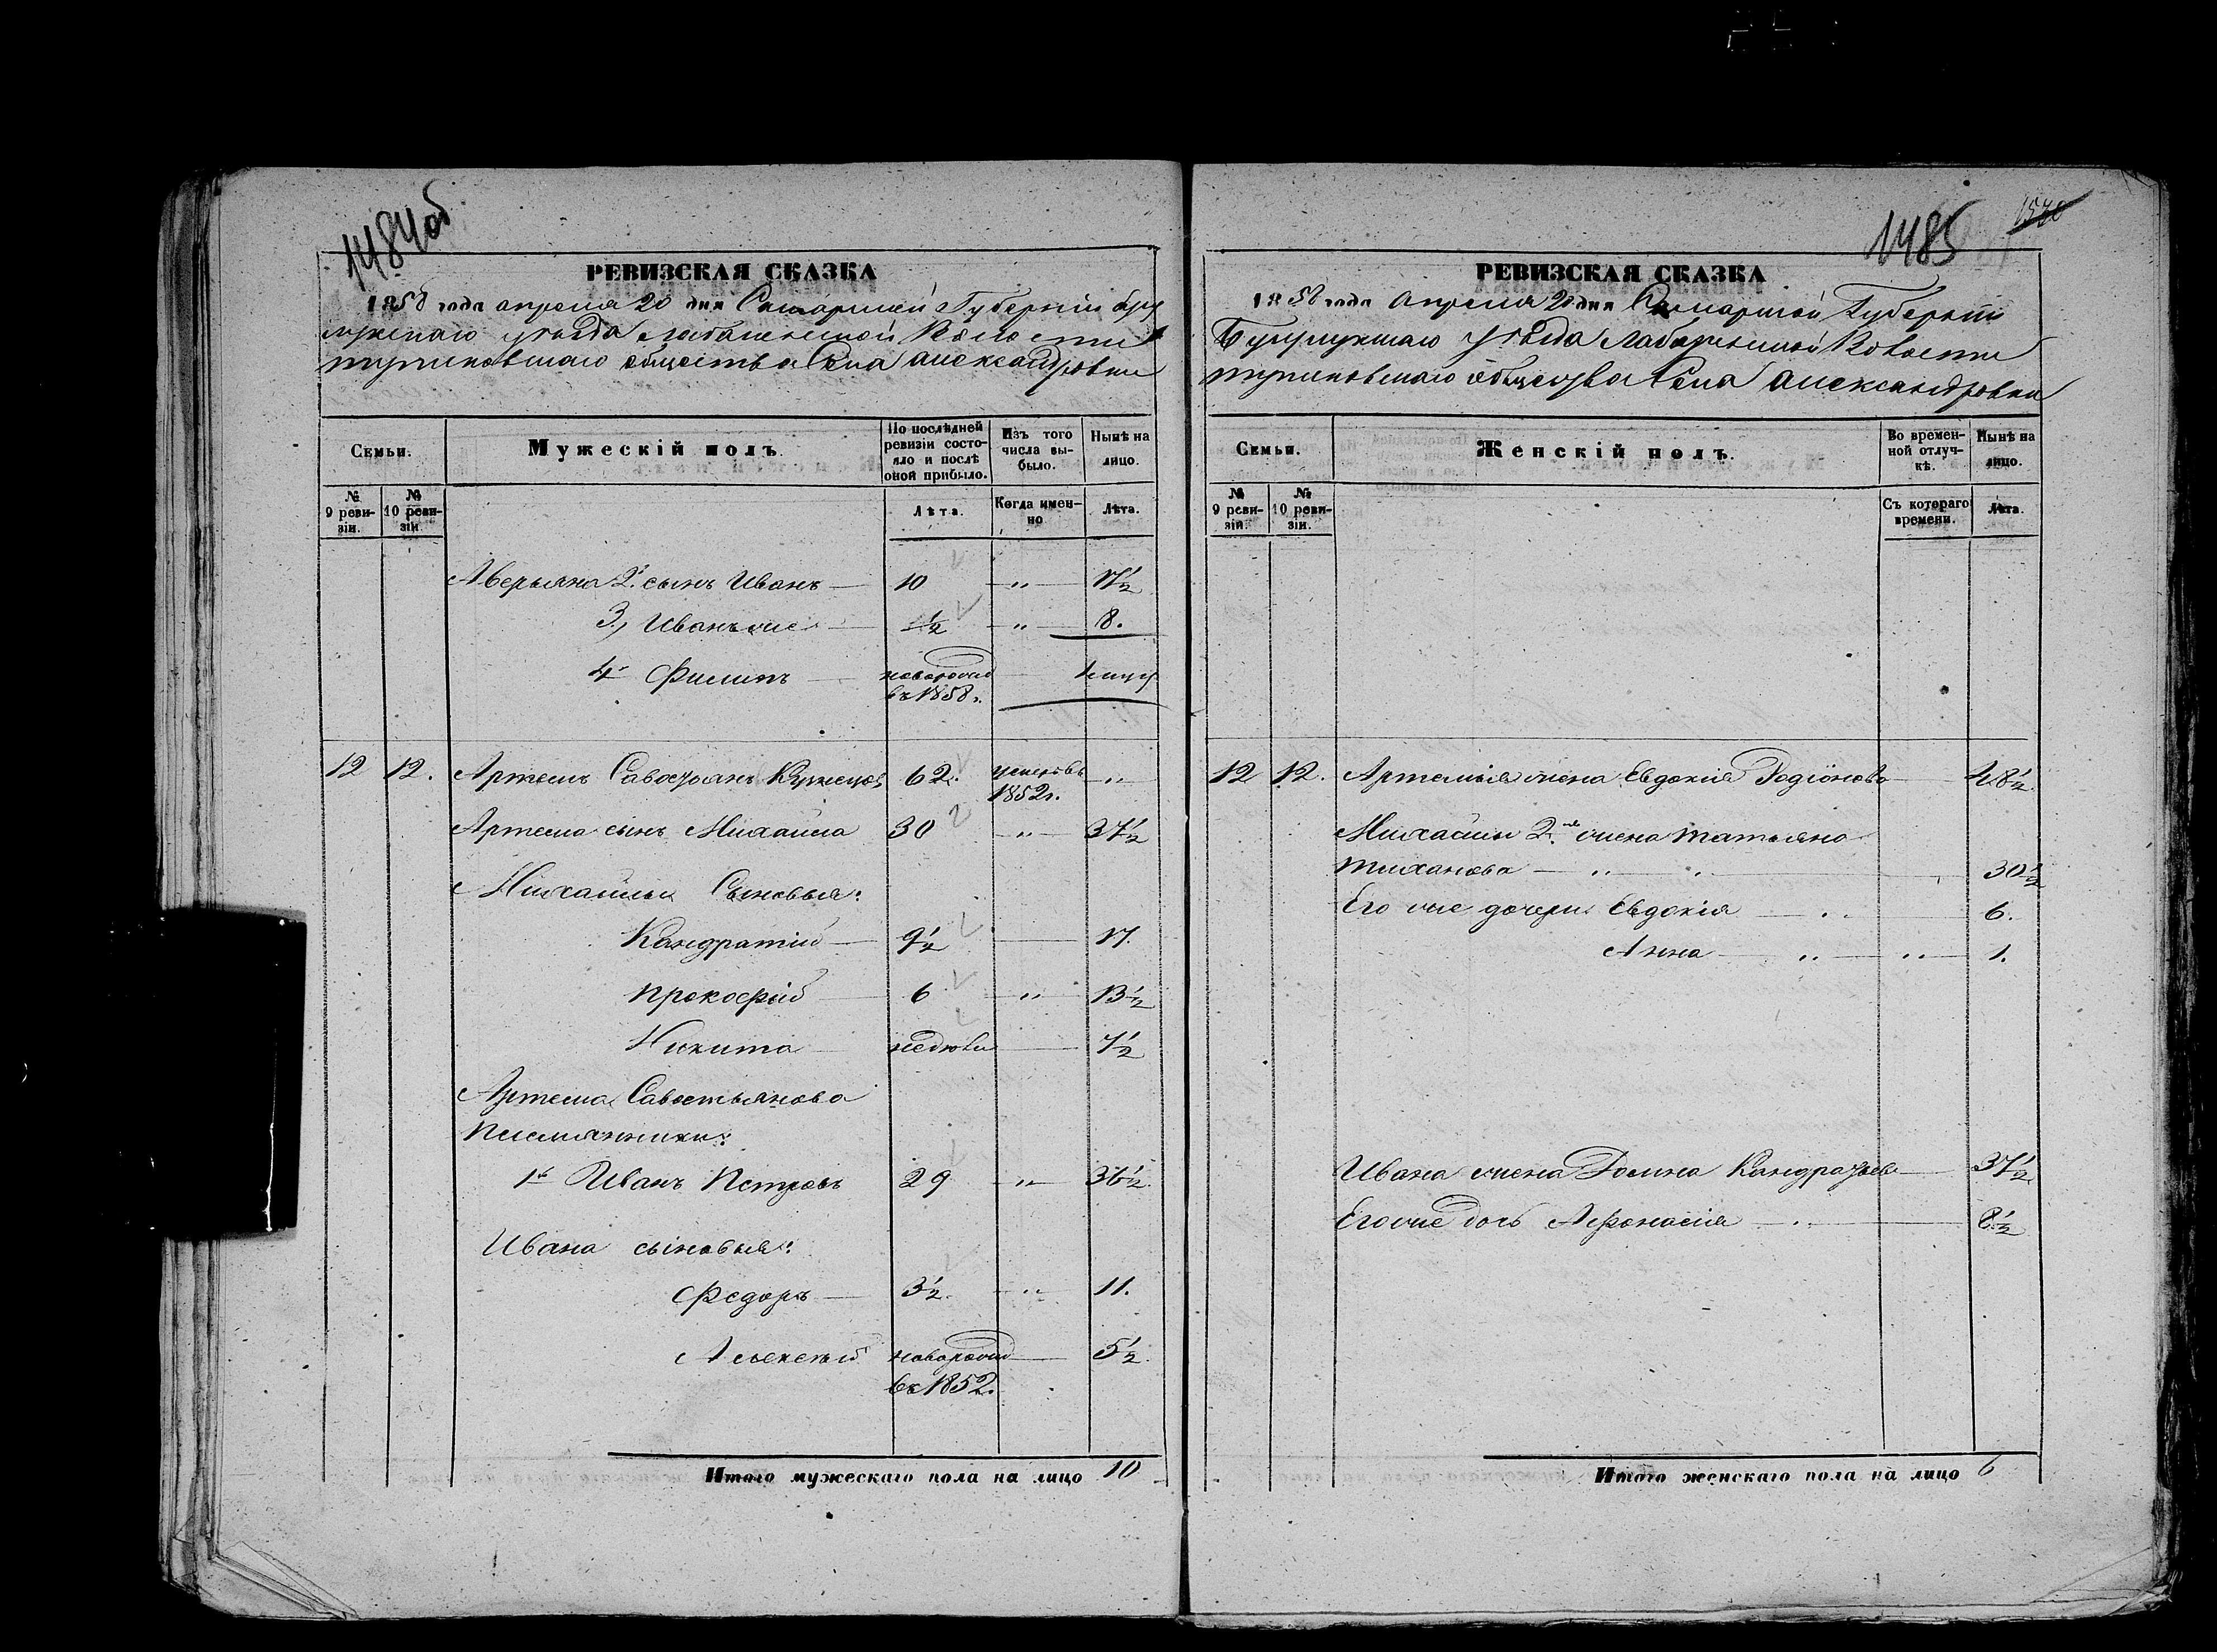 1484об
РЕВИЗСКАЯ СКАЗКА
1858 года апреля 20 дня Самарской Губернии бугу
ружскаго уѣзда Волости
общества Села александровки
Семьи.
Мужескій полъ.
По послѣдней ревизіи состояло и послѣ оной прибыло.
Изъ того числа выбыло.
Нынѣ на лицо.
№ 9 ревизіи.
№ 10 ревизіи.
Лѣта.
Когда именно
Лѣта.
Аверьяна 2й сынъ Иванъ — 10 — „ — 17½
3, Иванъ же — ½ — „ — 8.
4й Филипъ — новорожд
въ 1858г.
12 12. Артемъ Савостьянъ Кузнецовъ 62. умеръ въ „
1852г.
Артема сынъ Михайла 30 — „ — 37½
Михайлы Сыновья:
Кандратий — 9½ — 17.
Прокофий — 6 — „ — 13½
Никита — недѣли — 7½
Артема Савостьянова
племянники:
1й Иванъ Петровъ 29 — „ — 36½.
Ивана сыновья:
Федоръ — 3½. — „ — 11.
Алексѣй новорожд — 5½.
въ 1852.
Итого мужескаго пола на лицо 10
1485
РЕВИЗСКАЯ СКАЗКА
1858 года апреля 20 дня Самарской Губернии
Бугурускаго уѣзда Волости
общества Села александровки
Семьи.
Женскій полъ.
Во временной отлучкѣ.
Нынѣ на лицо.
№ 9 ревизіи.
№ 10 ревизіи.
Съ котораго времени.
Лѣта.
12 12. Артемья жена Евдокия Родіонова — 48½.
Михайлы 2.я жена татьяна
тиханова — „ — „ — 30½
Его же дочери Евдокия — „ 6.
Анна — „ — „ — 1.
Ивана жена Домна Кандратьева — 37½
Его же дочь Афанасия — „ — 8½
Итого женскаго пола на лицо 6